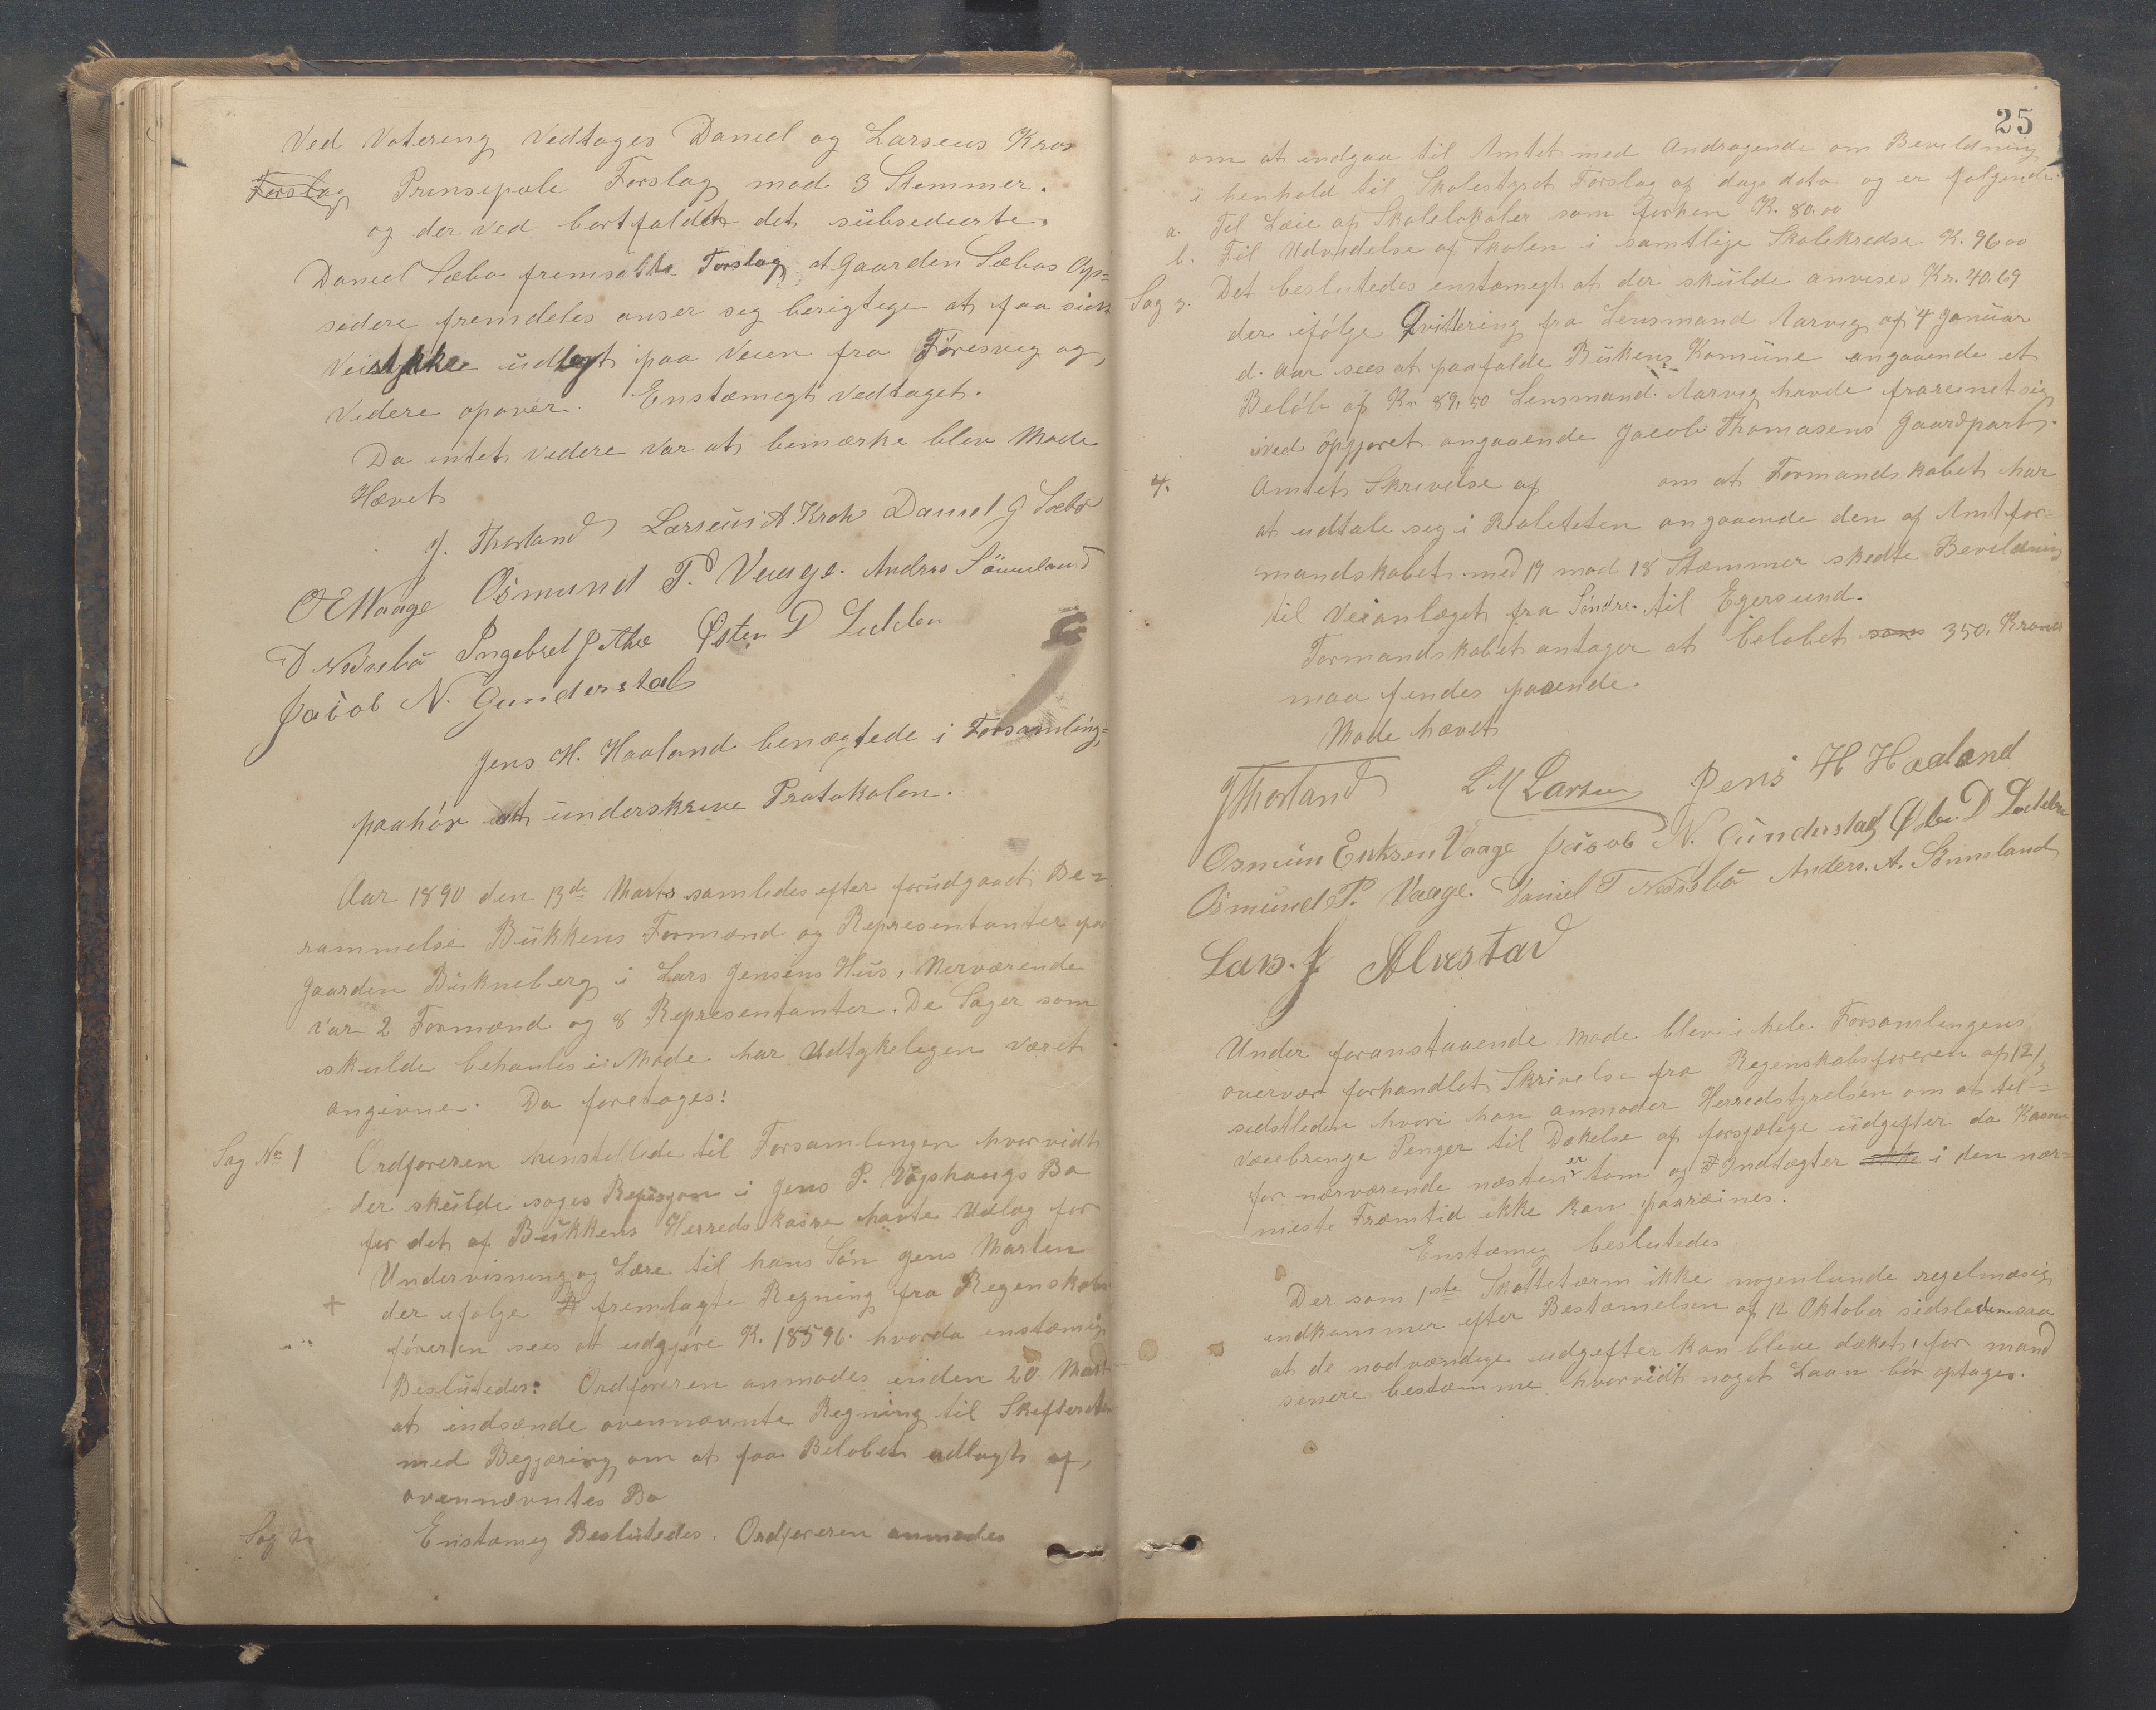 Ved Votering Vedtages Daniel og Larseus Kros
Forslag Prinsepale Forslag mod 3 Stemmer.
og der ved bortfaldet det subsedierte.
Daniel Sæbø fremsatte Forslag, at Gaarden Sæbøs Op-
sedere fremdeles anser seg berigtege at faa sidt
Veistykke udlagt paa Veien fra Føresvig og
videre opover. Enstæmegt Vedtaget.
Da entet videre var at bemærke blev Møde
Hævet
J. Thorland Larseus A. Kroh Daniel J Sæbø
O E Waage Osmund P. Vaage. Andreas Sømmeland
D Nedrebø Ingebret J Alve Østen D Lodden
Jacob N. Gunderstad
Jens H. Haaland benægtede i Forsamling-
paahør at underskreve Protokolen.
Aar 1890 den 13de Marts samledes efter forudgaaet Be-
rammelse Bukkens Formænd og Representanter paa
Gaarden Bukneberg i Lars Jensens Hus, Nerværende
var 2 Formænd og 8 Representanter. De Sager som
skulde behanles i Møde har Udtykelegen været
angivne. Da foretoges:
Sag No 1 Ordføreren henstellede til Forsamlingen hvorvidt
der skulde søges Refusjon i Jens P. Vågshaugs Bo
for det af Bukkens Herredskasse havte Udlæg for
Undervisning og Lære til hans Søn Jens Marten
+ der efølge fremlagte Regning fra Regenskabs
føreren sees at udgjøre K. 185 96. hvorda enstæmig
Beslutedes: Ordføreren anmodes inden 20 Marts
at indsænde ovennævnte Regning til Skifteretten
med Begjæring om at faa Beløbet udlagt af
ovennævntes Bo
Sag 2 Enstæmeg Beslutedes. Ordføreren anmodes
25
om at indgaa til Amtet med Andragende om Bevilgning
i henhold til Skolestyret Forslag af dags dato og er følgende
a. Til Leie af Skolelokaler som forhen K. 80.00
b. Til Udvidelse af Skolen i samtlige Skolekredse K. 96 00
Sag 3. Det beslutedes enstæmegt at der skulde anvises Kr. 40.69
der ifølge Qvittering fra Lensmand Aarvig af 4 Januar
d. Aar sees at paafalde Bukens Komune angaaende et
Beløb af Kr 89,50 Lensmand Aarvig havde frareinet sig
ved opgjøret angaaende Jacob Thomasens Gaardpart.
4. Amtets Skrivelse af om at Formandskabet har
at udtale seg i Realeteten angaaende den af Amtfor-
mandskabet med 19 mod 18 Stæmmer skedte Bevilgning
til Veianlæget fra Søndre. til Egersund.
Formandskabet antager at beløbet som 350. Kroner
maa fendes paaende.
Møde hævet
J Thorland L M Larsen Jens H Haaland
Osmun Eriksen Vaage Jacob N. Gunderstad Østen D Lodden
Osmund P. Vaage. Daniel T Nedrebø Anders. A. Sømmeland
Lars. J Alvestad
Under foranstaaende Møde blev i hele Forsamlingens
overvær forhandlet Skrivelse fra Regenskabsføreren af 12/3
sidstleden hvori han anmoder Herredstyrelsen om at til-
veiebringe Penger til Dækelse af forsjælige udgifter da Kassen
for nærværende næsten er tom og Indtægter ikke i den nær-
meste Fræmtid ikke kan paaræines.
Enstæmeg beslutedes
Der som 1ste Skattetærm ikke nogenlunde regelmæsig
indkommer efter Bestæmelsen af 12 Oktober sidsleden saa
at de nødvændige udgefter kan bleve dæket, før mand
senere bestæmme hvorvidt noget Laan bør optages.